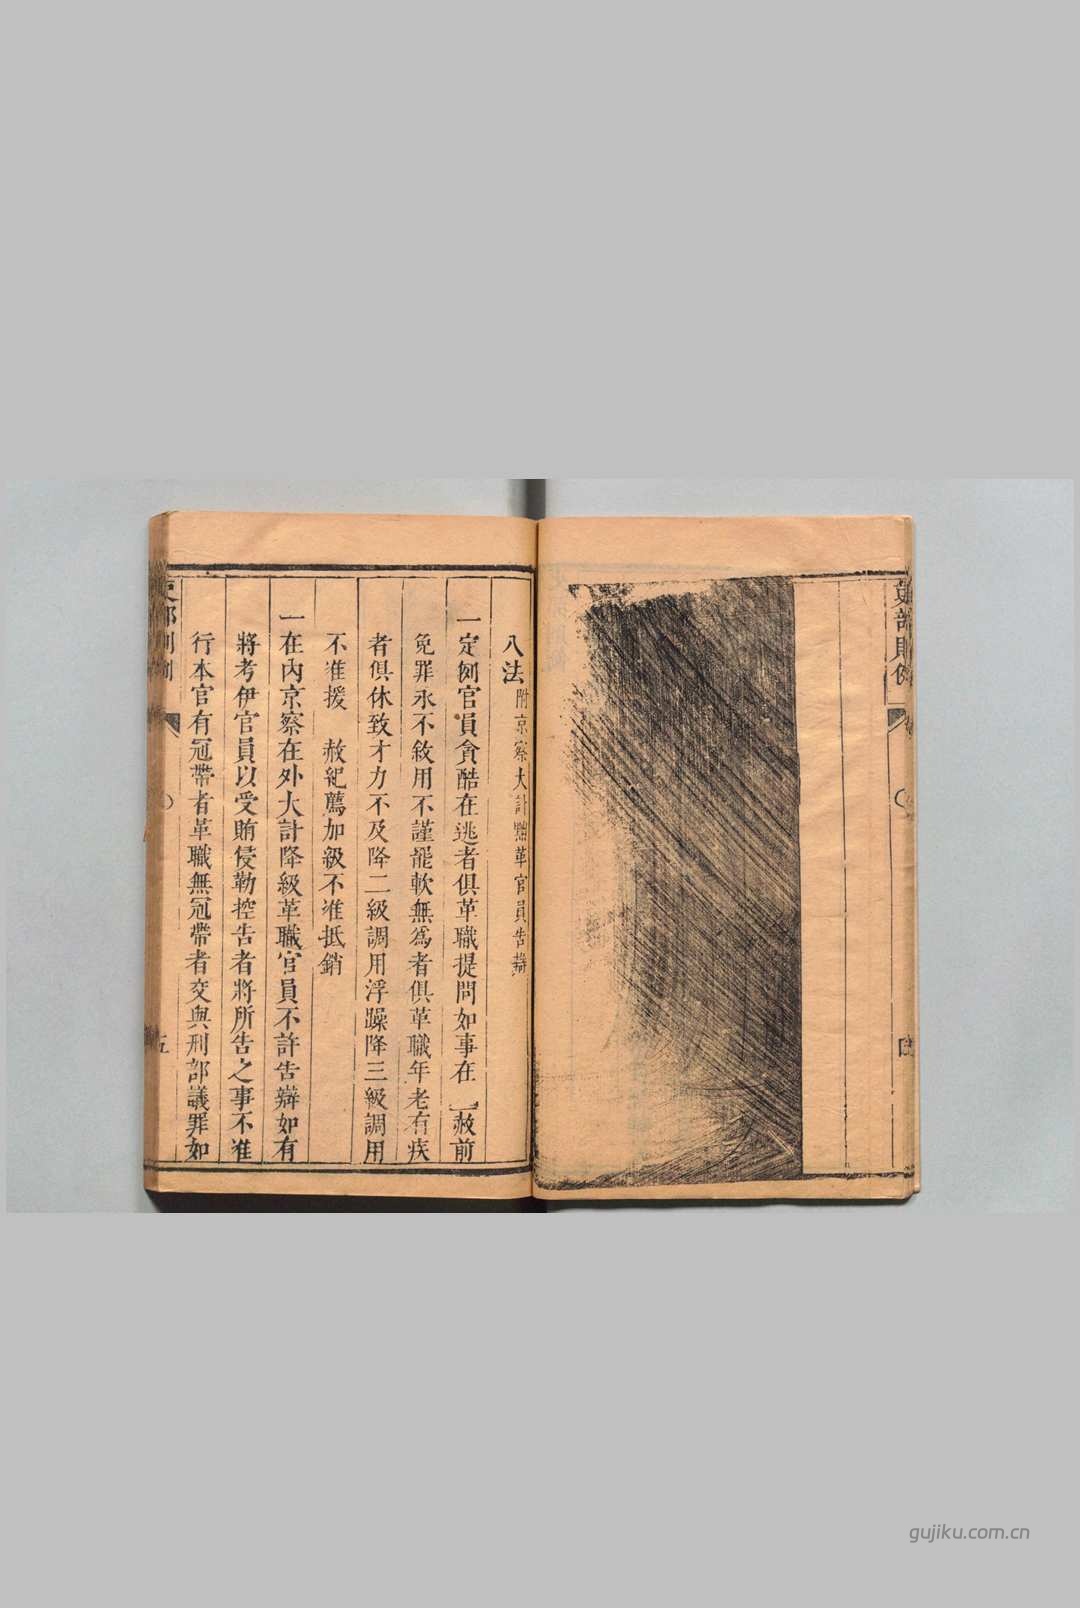 吏部則例
四
八法 附京察大計黜革官員告辯
一定例官員貪酷在逃者俱革職提問如事在 赦前
免罪永不敘用不謹罷軟無為者俱革職年老有疾
者俱休致才力不及降二級調用浮躁降三級調用
不准援 赦紀薦加級不准抵銷
一在內京察在外大計降級革職官員不許告辯如有
將考伊官員以受賄侵勒控告者將所告之事不准
行本官有冠帶者革職無冠帶者交與刑部議罪如
吏部則例
五
gujiku.com.cn